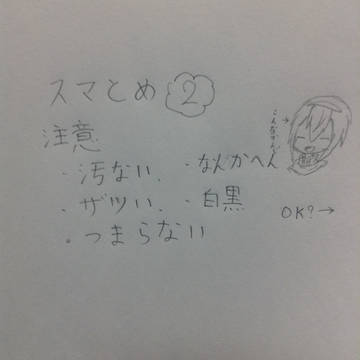 スマとめ②
注意
・汚ない ・なんかへん
・ザツい ・白黒
・つまらない
こんなかんじ→
OK?→